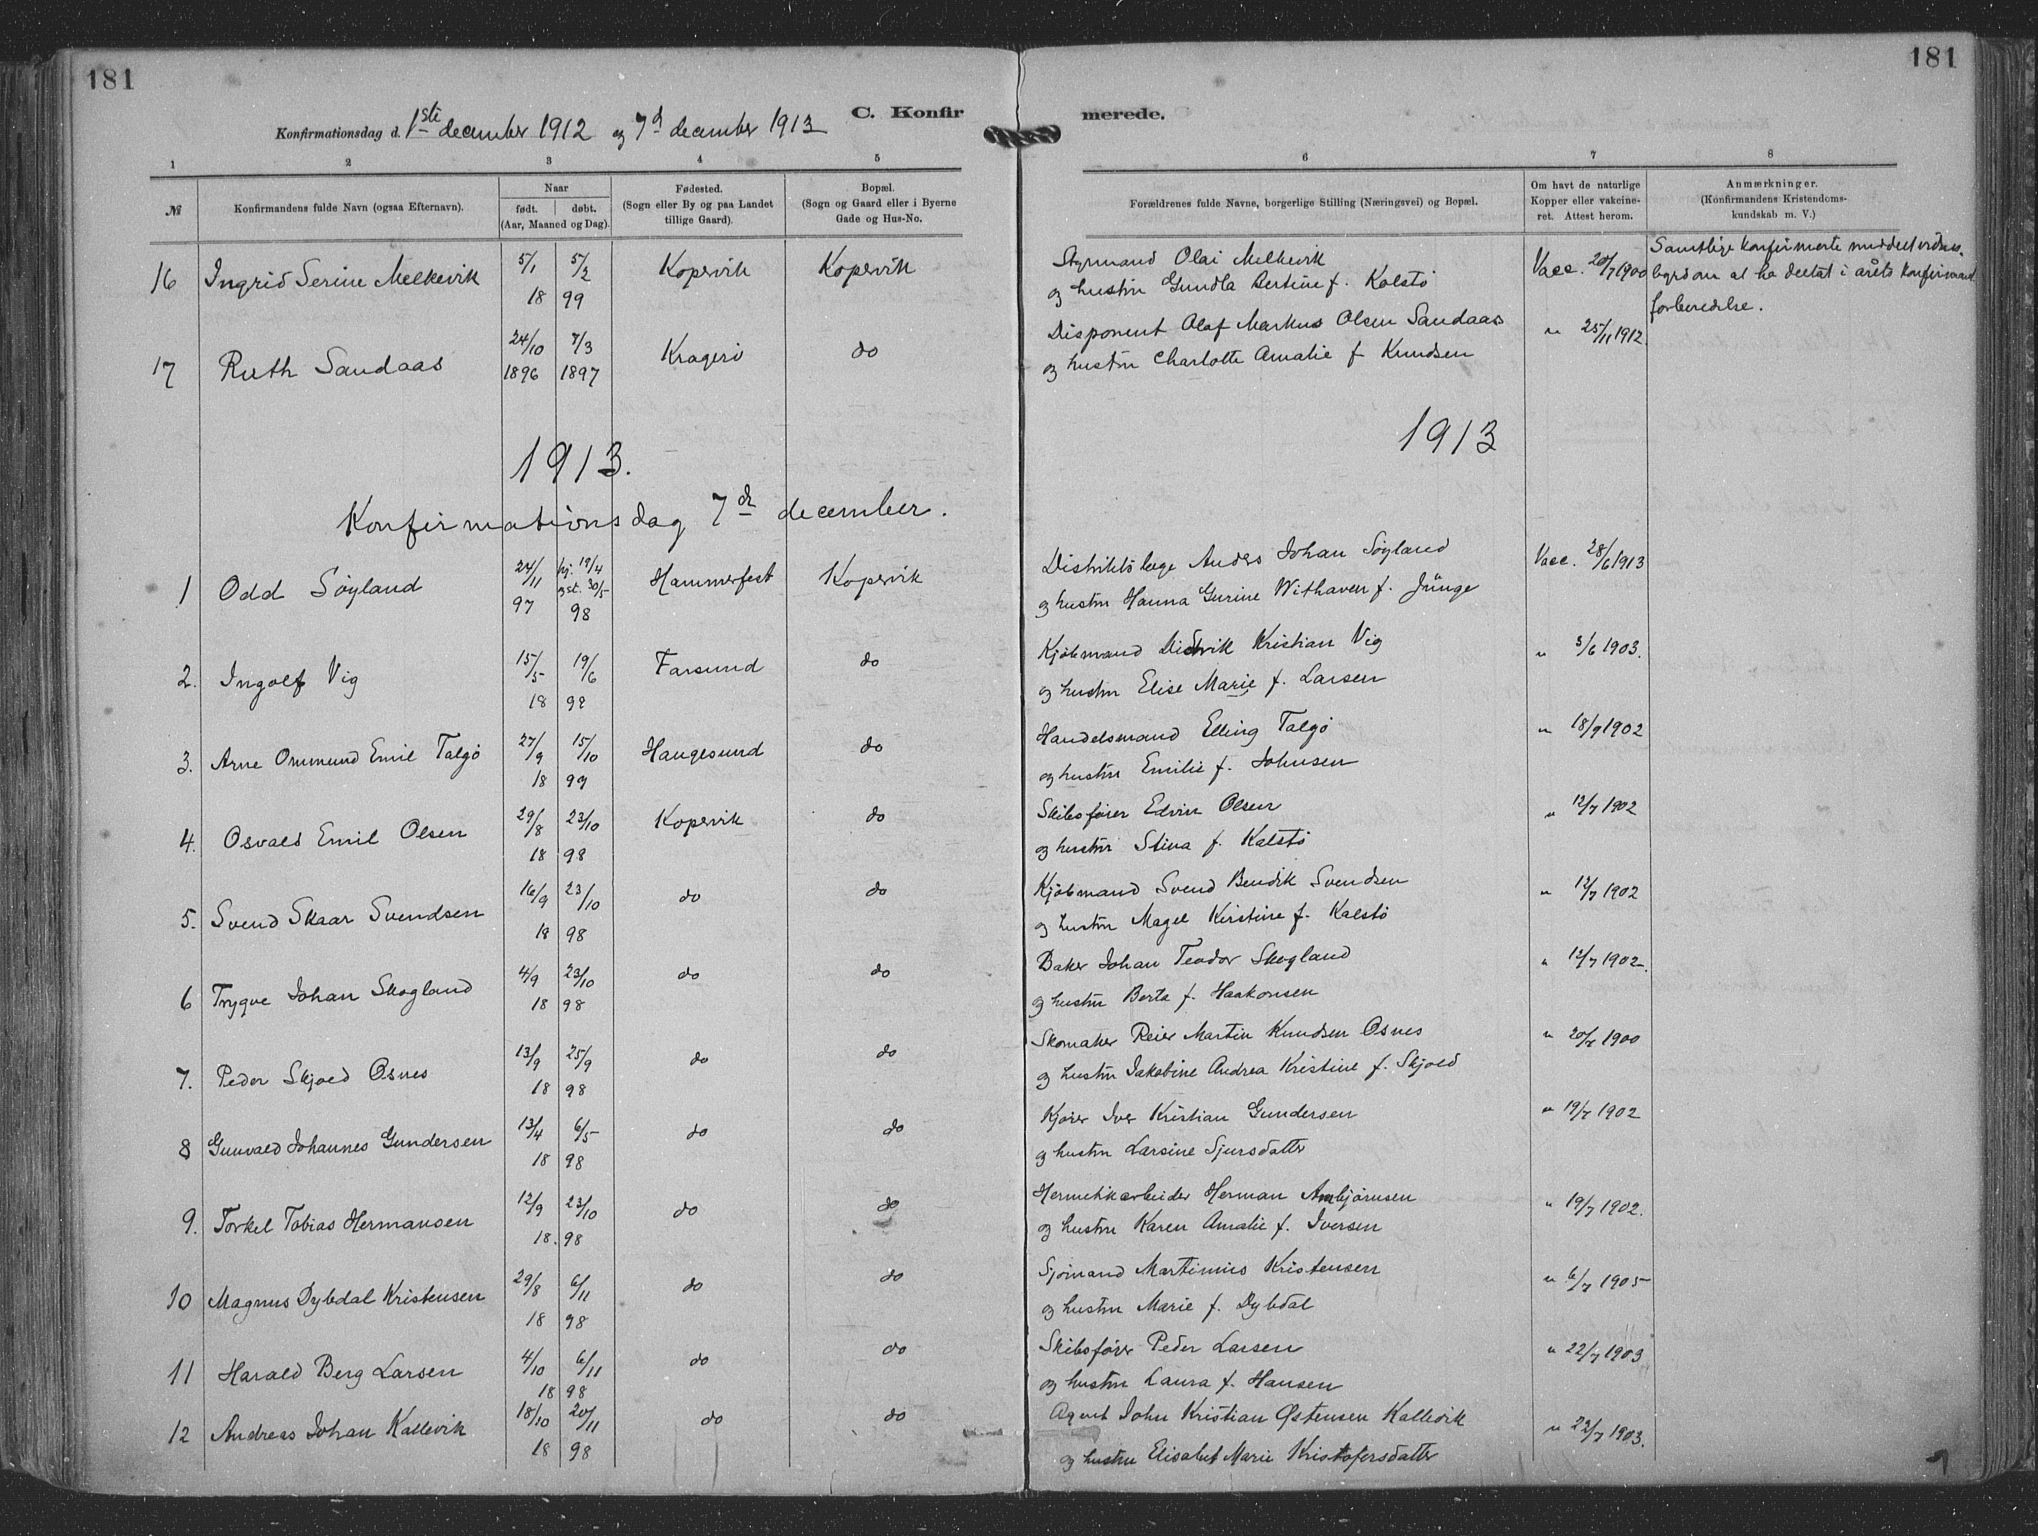 181
181
Konfirmationsdag d. 1ste december 1912 og 7d december 1913
C. Konfirmerede.
1 2 3 4 5 6 7 8
№
Konfirmandens fulde Navn (ogsaa Efternavn).
Naar
født. døbt.
(Aar, Maaned og Dag).
Fødested.
(Sogn eller By og paa Landet
tillige Gaard).
Bopæl.
(Sogn og Gaard eller i Byerne
Gade og Hus-No.
Forældrenes fulde Navne, borgerlige Stilling (Næringsvei) og Bopæl.
Om havt de naturlige
Kopper eller vakcine-
ret. Attest herom.
Anmærkninger.
(Konfirmandens Kristendoms-
kundskab m. V.)
16 Ingrid Serine Melkevik 5/1 5/2 Kopervik Kopervik Styrmand Olai Melkevik Vacc. 20/7 1900
18 99 og hustru Gundla Bertine f. Kalstø
Samtlige konfirmerte meddelt vidnes-
byrd om at ha deltat i årets konfirmand
forberedelse.
17 Ruth Sandaas 24/10 7/3 Kragerö do Disponent Olaf Markus Olsen Sandaas " 25/11 1912.
1896 1897 og hustru Charlotte Amalie f Knudsen
1913. 1913
Konfirmationsdag 7de december.
1 Odd Søyland 24/11 hj. 19/4 Hammerfest Kopervik Distriktslæge Anders Johan Søyland Vacc. 28/6 1913
st. 30/5
97 98 og hustru Hanna Gurine Withaven f. Jünge
2. Ingolf Vig 15/5 19/6 Farsund do Kjøbmand Didrik Kristian Vig " 3/6 1903.
18 98 og hustru Elise Marie f. Larsen
3. Arne Ommund Emil Talgø 27/9 15/10 Haugesund do Handelsmand Elling Talgø " 18/9 1902
18 99 og hustru Emilie f. Johnsen
4. Osvald Emil Olsen 29/8 23/10 Kopervik do Skibsfører Edvin Olsen " 12/7 1902
18 98 og hustru Stina f. Kalstø
5. Svend Skaar Svendsen 16/9 23/10 do do Kjøbmand Svend Bendik Svendsen " 12/7 1902
18 98 og hustru Magel Kirstine f. Kalstø
6 Trygve Johan Skogland 4/9 23/10 do do Baker Johan Teodor Skogland " 12/7 1902.
18 98 og hustru Berta f. Haakonsen
7. Peder Skjold Osnes 13/9 25/9 do do Skomaker Reier Martin Knudsen Osnes " 20/7 1900
18 98 og hustru Jakobine Andrea Kristine f. Skjold
8 Gunvald Johannes Gundersen 13/4 6/5 do do Kjører Iver Kristian Gundersen " 19/7 1902
18 98 og hustru Larsine Sjursdatter
9. Torkel Tobias Hermansen 12/9 23/10 do do Hermetikarbeider Herman Arnbjørnsen " 19/7 1902.
18. 98 og hustru Karen Amalie f. Iversen
10 Magnus Dybdal Kristensen 29/8 6/11 do do Sjømand Martinius Kristensen " 6/7 1905
18 98 og hustru Marie f. Dybdal
11 Harald Berg Larsen 4/10 6/11 do do Skibsfører Peder Larsen " 22/7 1903
18 98 og hustru Laura f. Hansen
12 Andreas Johan Kallevik 18/10 20/11 do do Agent John Kristian Østensen Kallevik " 22/7 1903.
18 98 og hustru Elisabet Marie Kristofersdatter